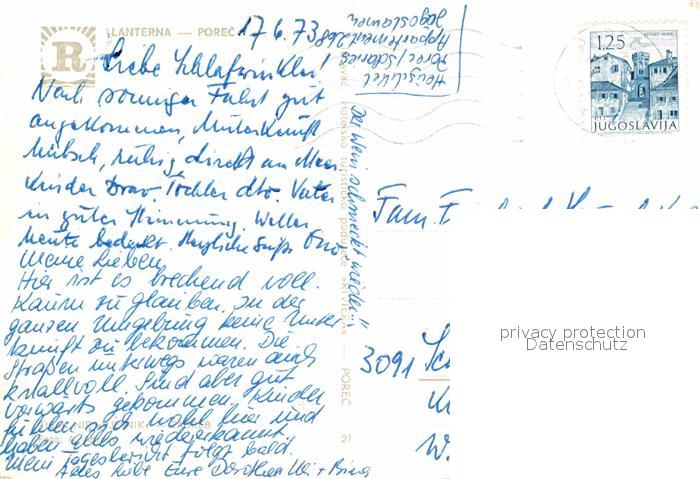 R LANTERNA — POREČ
17.6.73
Liebe Schlafwinkler!
Nach sonniger Fahrt gut
angekommen, Unterkunft
hübsch, ruhig direkt am Meer
Kinder brav. Töchter dto. Vater
in guter Stimmung. Wetter
heute bedeckt. Herzliche Grüße
Meine Lieben,
Hier ist es brechend voll.
Kaum zu glauben. In der
ganzen Umgebung keine Unter
kunft zu bekommen. Die
Straßen unterwegs waren auch
knallvoll. Sind aber gut
vorwärts gekommen. Kinder
fühlen sich wohl hier und
haben alles wiedererkannt.
Mein Tagesbericht folgt bald.
Alles Liebe Eure Dorothea
Der Wein schmeckt wieder!!
Poreč
Appartement 268
Jugoslawien
turističko poduzeće »RIVIERA« — POREČ
21
1,25
JUGOSLAVIJA
Fam.
3091
privacy protection
Datenschutz